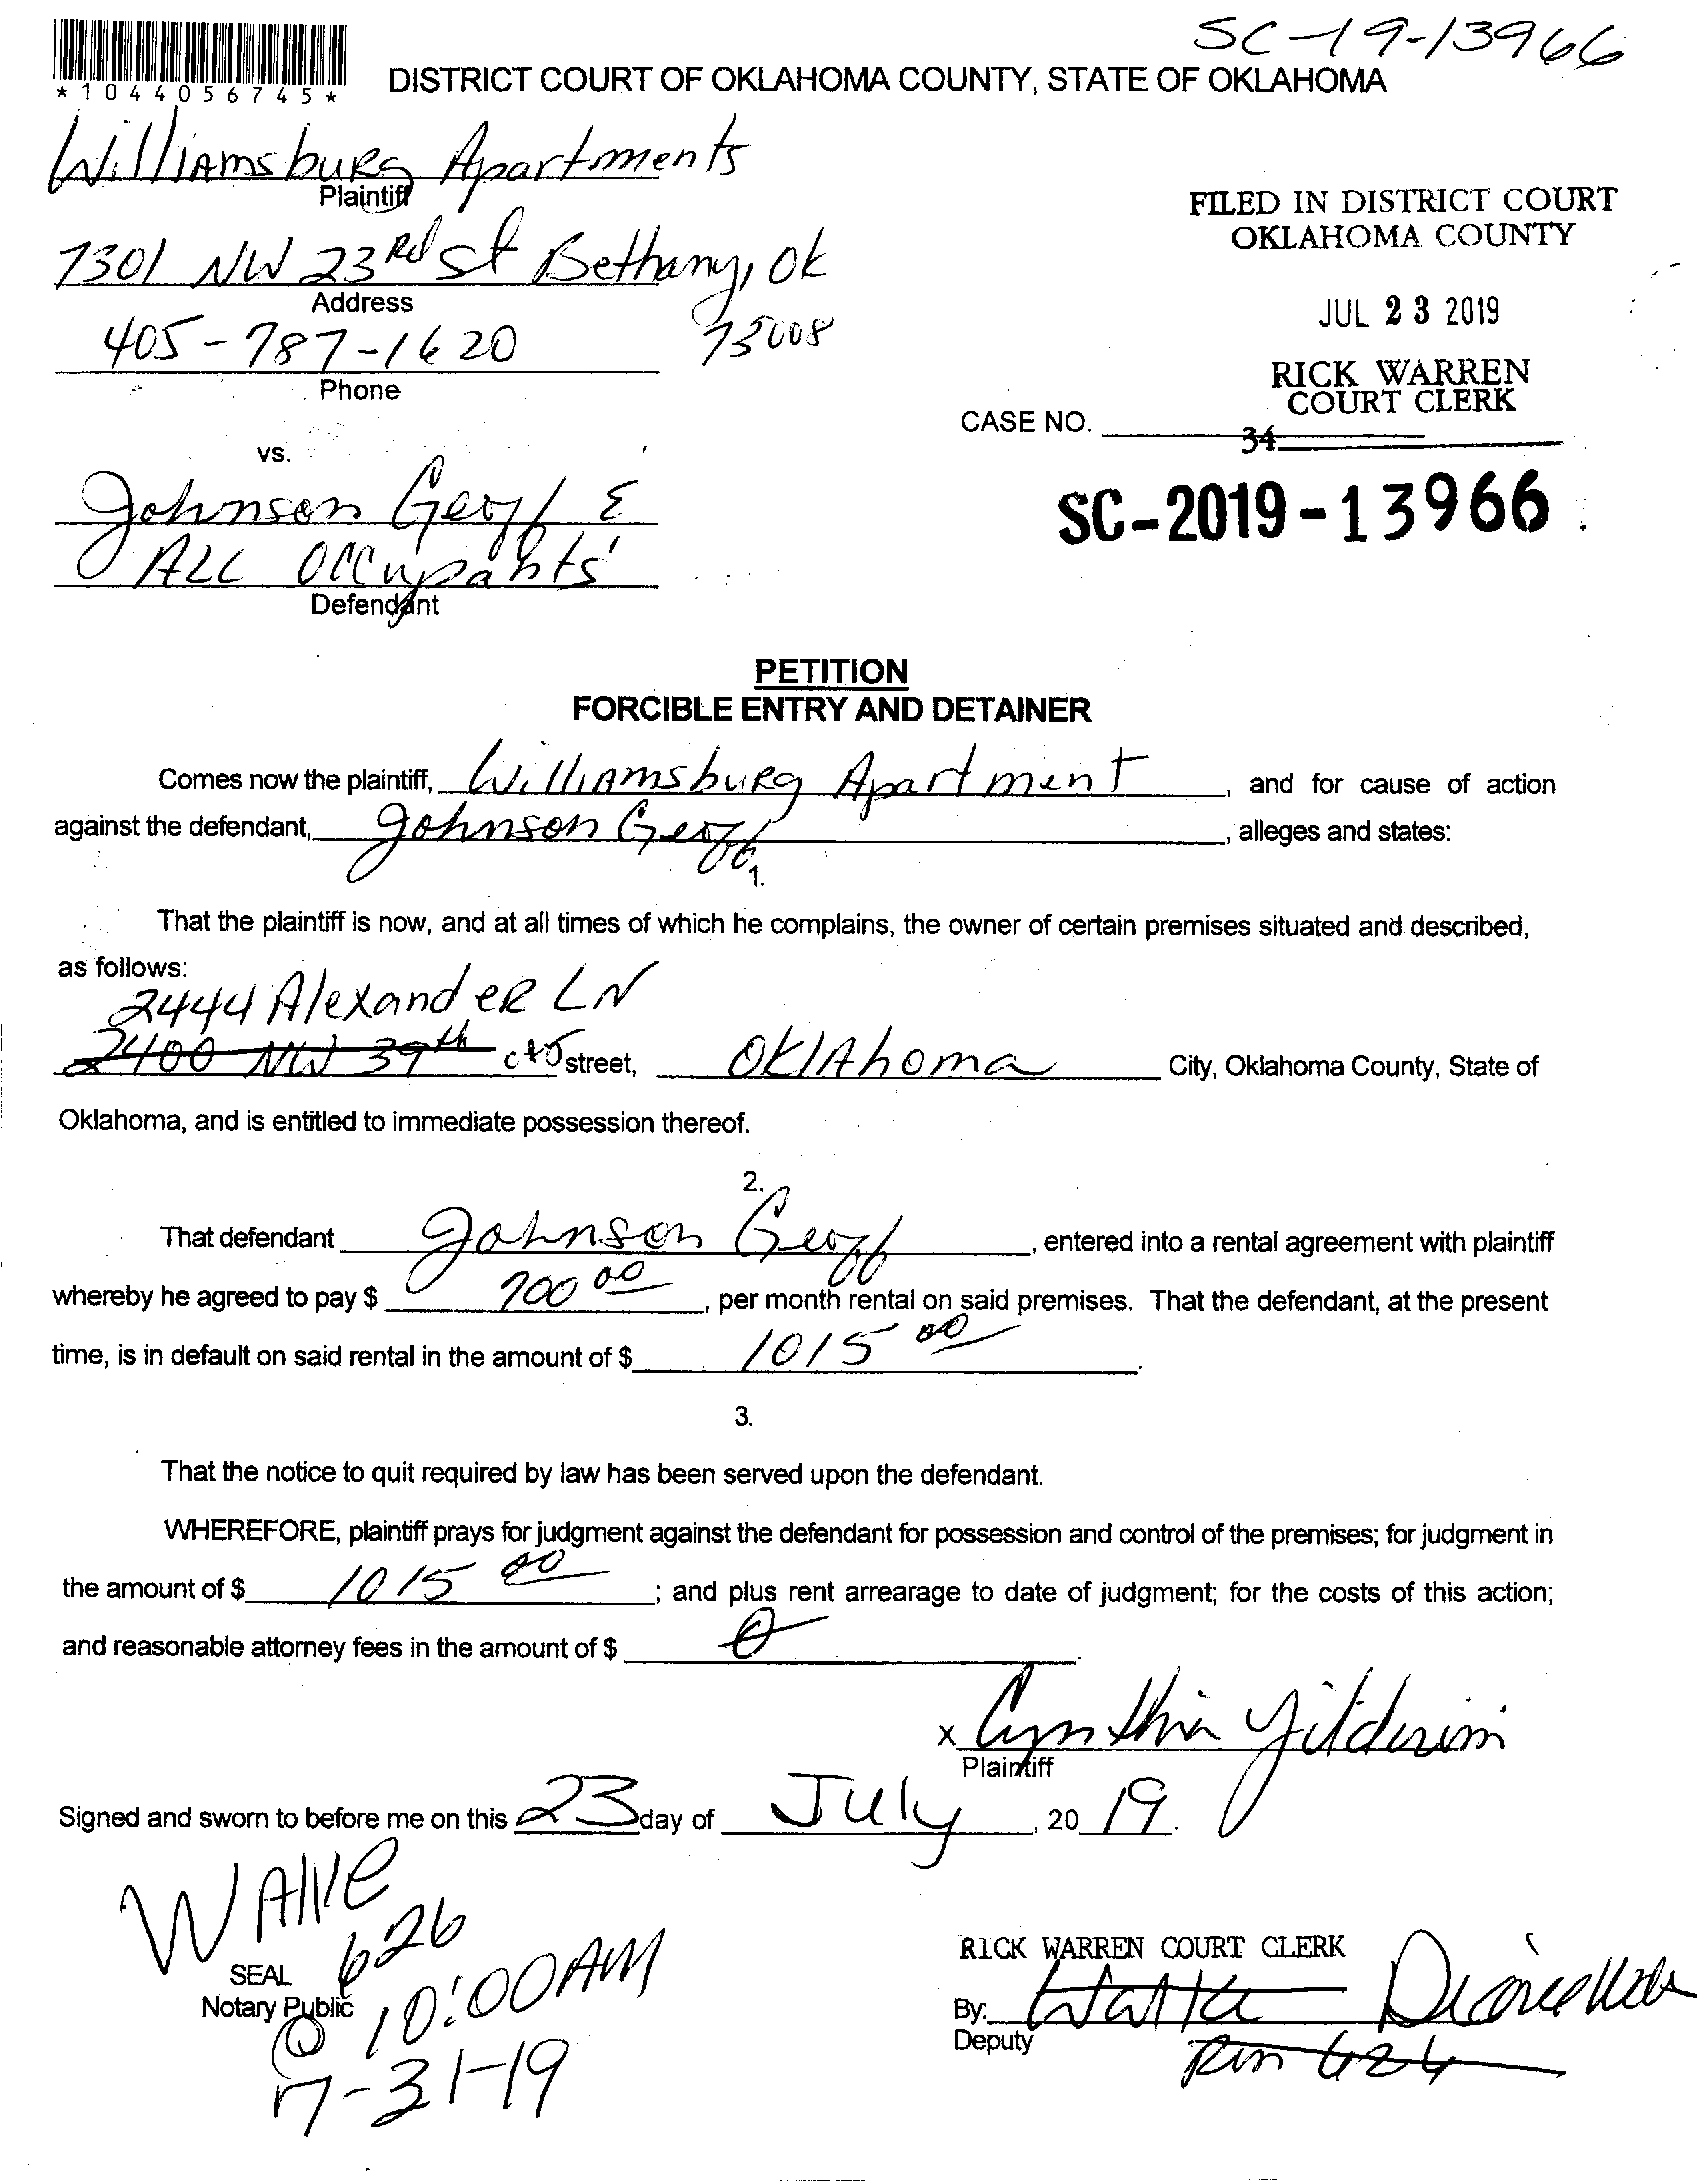 SC-19-13966
*1044056745*
DISTRICT COURT OF OKLAHOMA COUNTY, STATE OF OKLAHOMA
Williamsburg Apartments
Plaintiff
7301 NW 23Rd St Bethany, Ok
Address
73008
405-787-1620
Phone
FILED IN DISTRICT COURT
OKLAHOMA COUNTY
JUL 23 2019
RICK WARREN
COURT CLERK
CASE NO.
34
SC-2019-13966
vs.
Johnson Geoff &
ALL Occupants
Defendant
PETITION
FORCIBLE ENTRY AND DETAINER
Comes now the plaintiff, Williamsburg Apartment, and for cause of action
against the defendant, Johnson Geoff, alleges and states:
1.
That the plaintiff is now, and at all times of which he complains, the owner of certain premises situated and described,
as follows:
2444 Alexander LN
2400 NW 39th street, Oklahoma City, Oklahoma County, State of
Oklahoma, and is entitled to immediate possession thereof.
2.
That defendant Johnson Geoff, entered into a rental agreement with plaintiff
whereby he agreed to pay $ 700 00, per month rental on said premises. That the defendant, at the present
time, is in default on said rental in the amount of $ 1015 00.
3.
That the notice to quit required by law has been served upon the defendant.
WHEREFORE, plaintiff prays for judgment against the defendant for possession and control of the premises; for judgment in
the amount of $ 1015 00; and plus rent arrearage to date of judgment; for the costs of this action;
and reasonable attorney fees in the amount of $ 0.
x Cynthia Yilderim
Plaintiff
Signed and sworn to before me on this 23 day of July, 2019.
WAIVE
626
SEAL
Notary Public
@ 10:00AM
7-31-19
RICK WARREN COURT CLERK
By:
Deputy
Rm 626